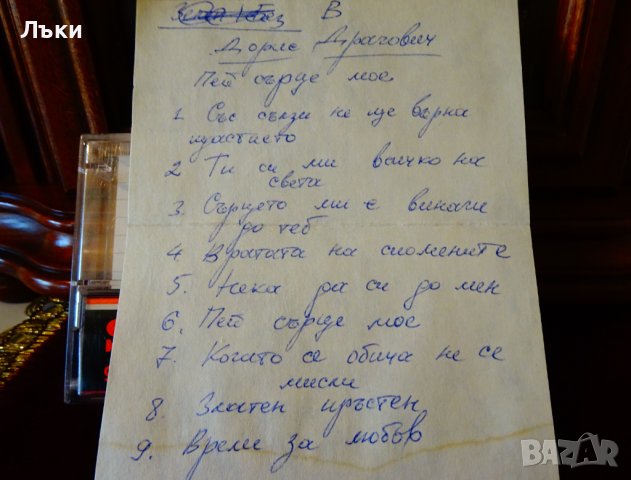 Лъки
В
Дорис Драгович
Пей сърце мое
1. Със сълзи не ще върна
щастието
2 Ти си ми всичко на
света
3. Сърцето ми е винаги
до теб
4 Вратата на спомените
5. Нека да си до мен
6. Пей сърце мое
7. Когато се обича не се
мисли
8. Златен пръстен
9. Време за любов
BAZAR